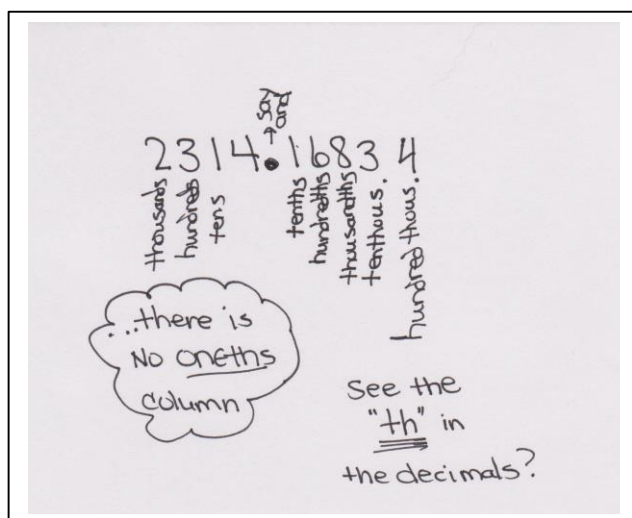 → say
and
2314.16834
thousands
hundreds
tens
tenths
hundredths
thousandths
tenthous.
hundred thous.
...there is
No oneths
column
See the
"th" in
the decimals?